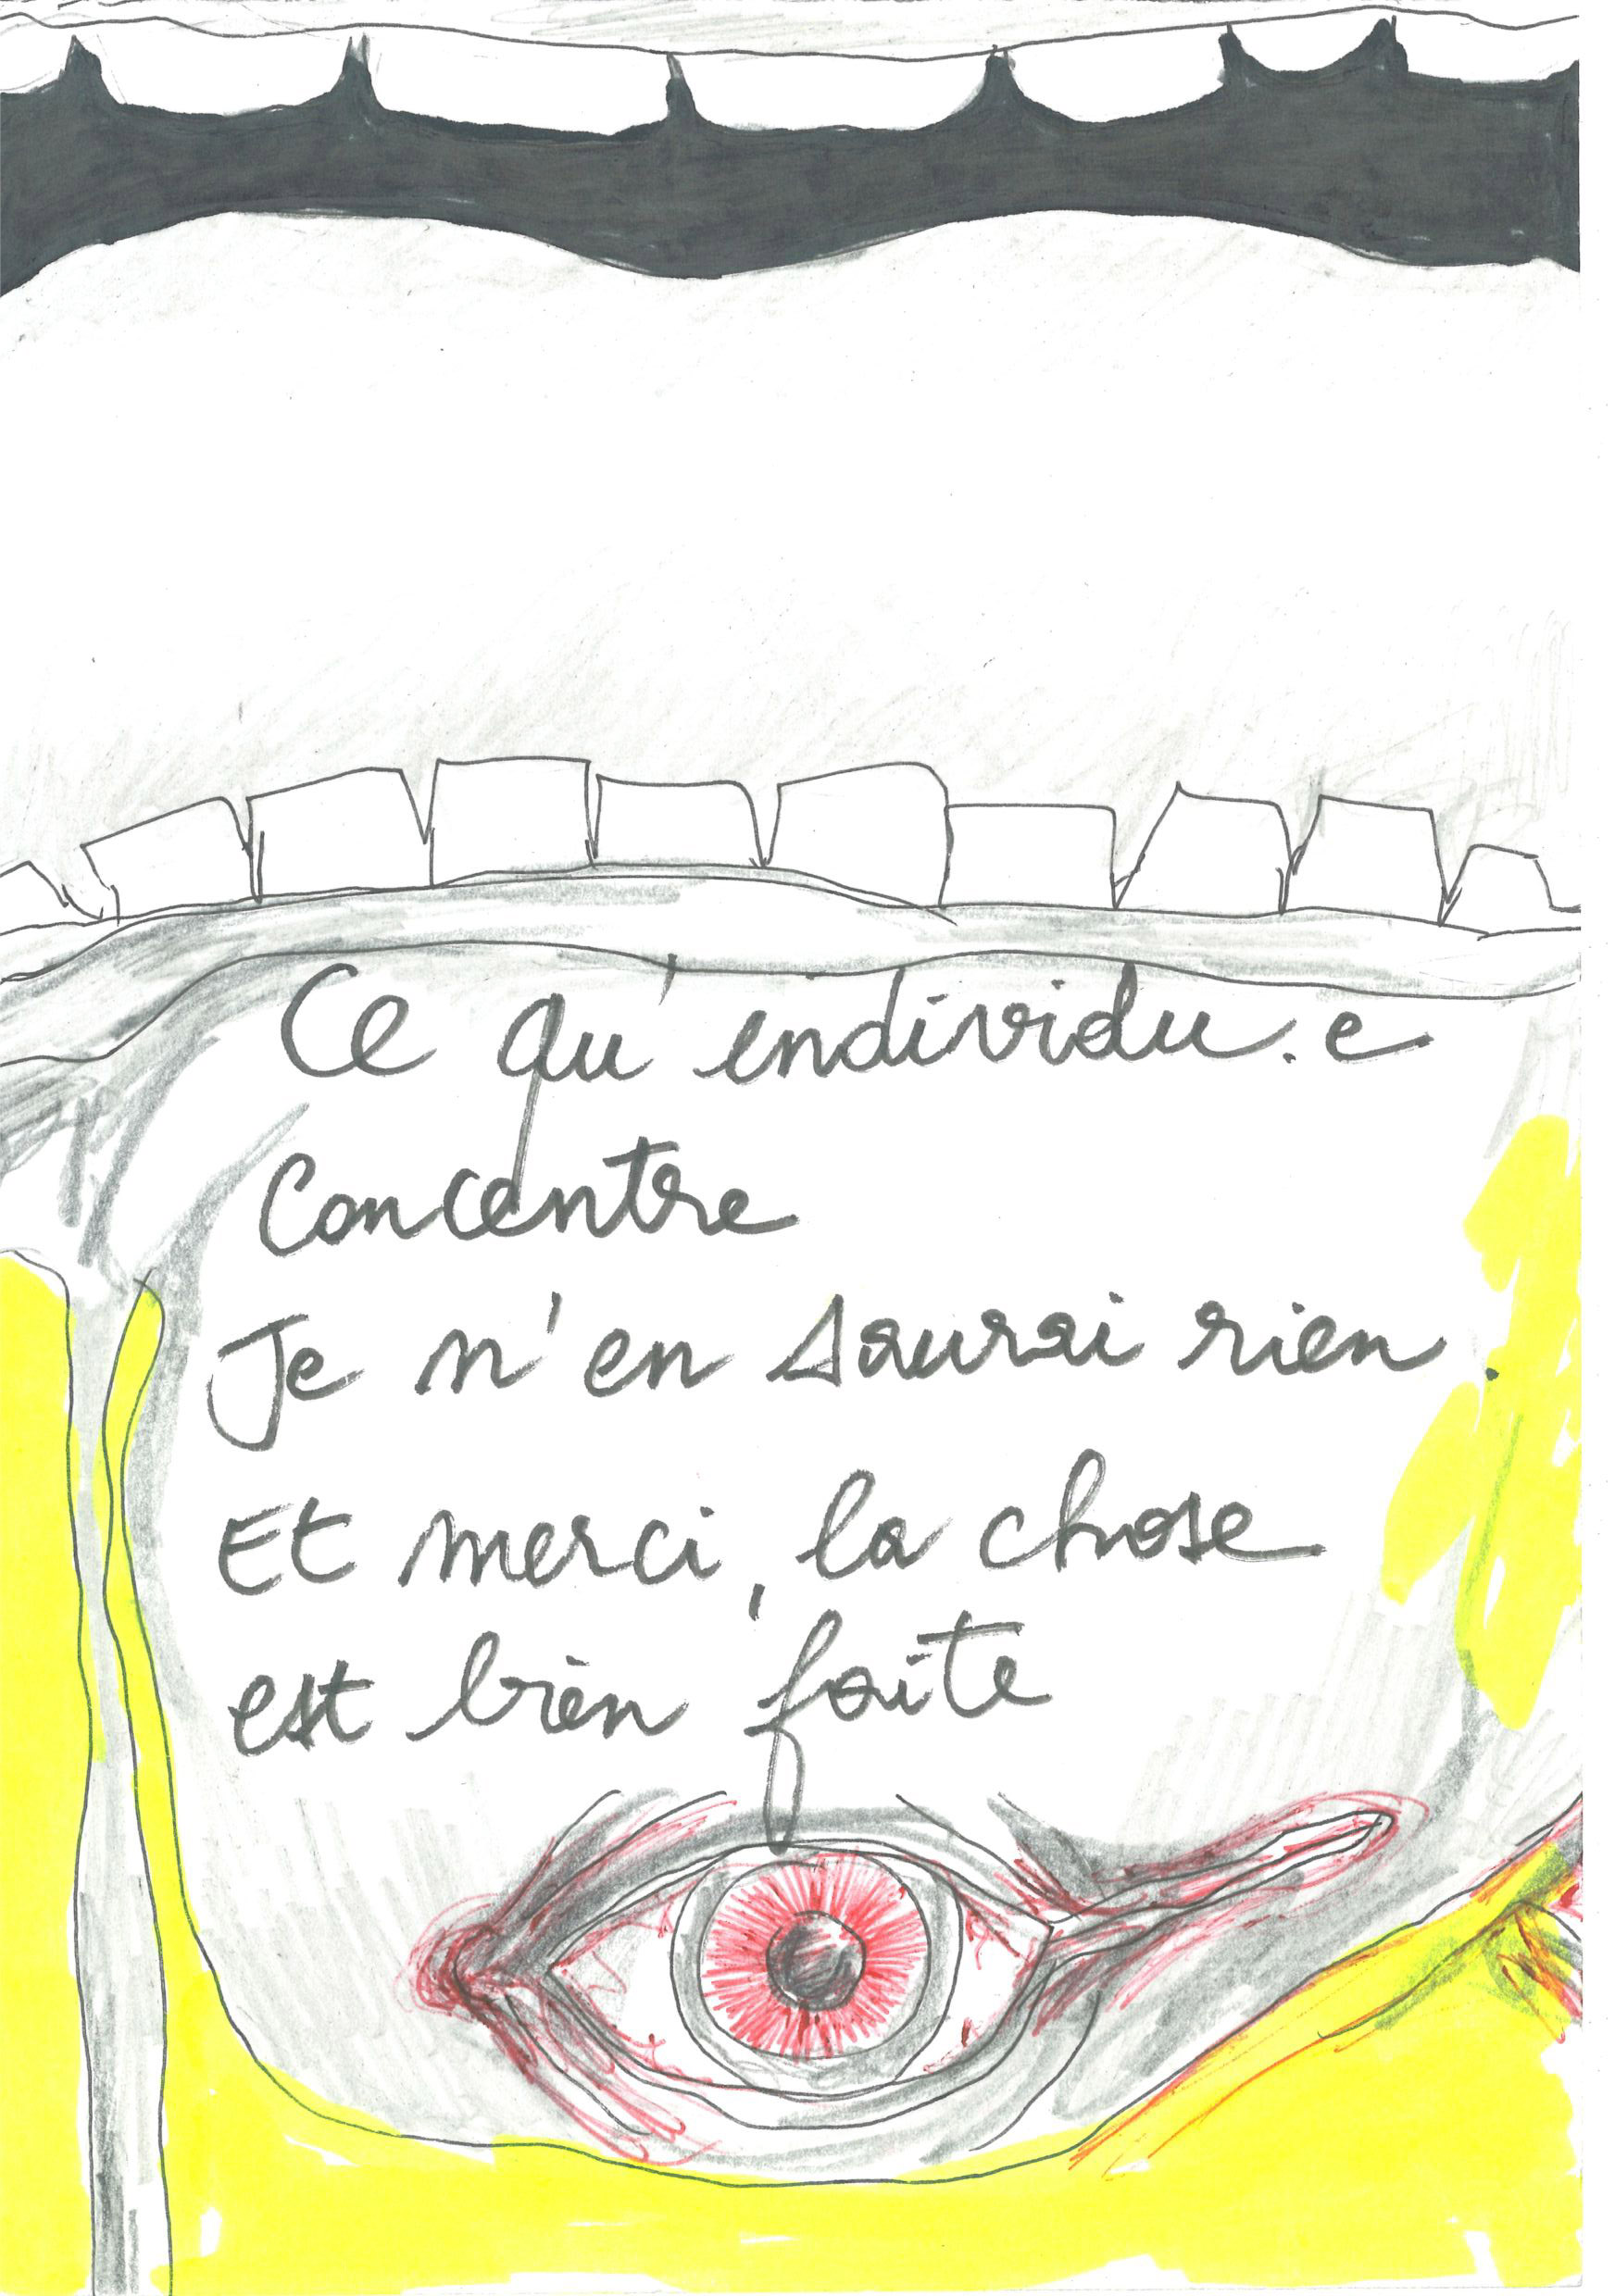 Ce qu'endividu.e
Concentre
Je n'en saurai rien.
Et merci, la chose
est bien faite